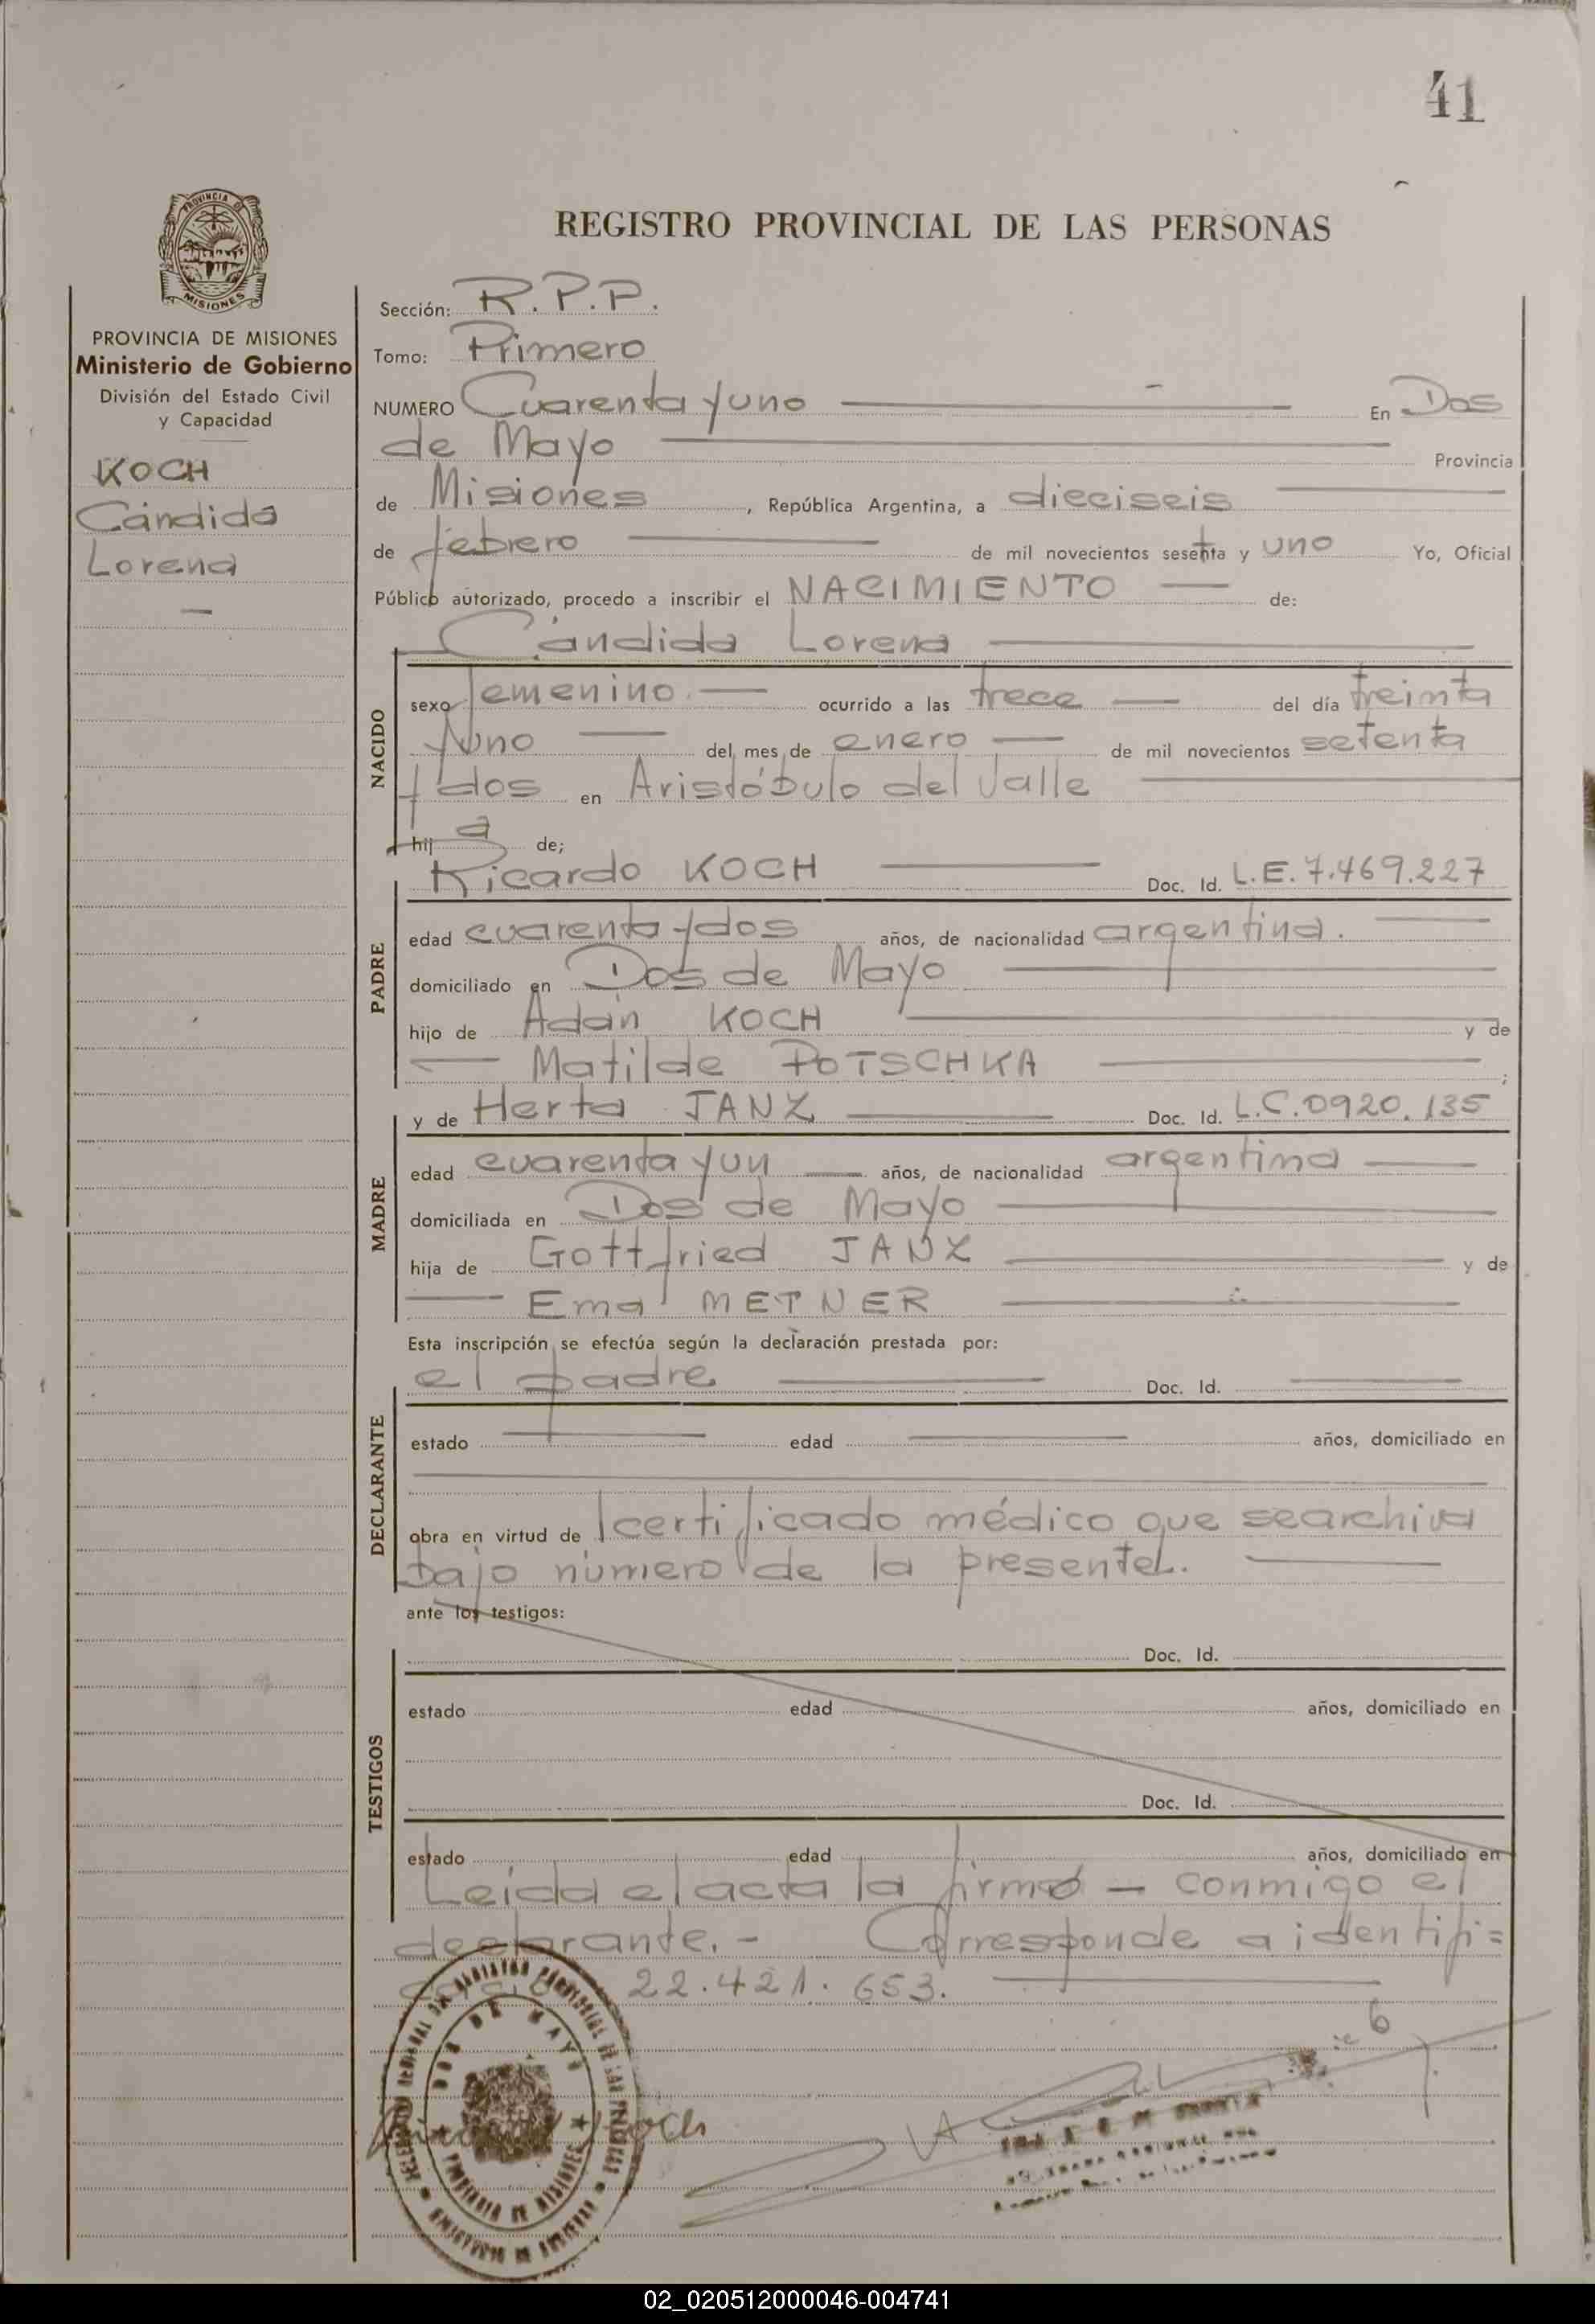 41
PROVINCIA DE
MISIONES
REGISTRO PROVINCIAL DE LAS PERSONAS
PROVINCIA DE MISIONES
Ministerio de Gobierno
División del Estado Civil
y Capacidad
KOCH
Cándida
Lorena
Sección: R.P.P.
Tomo: Primero
NUMERO Cuarenta y uno En Dos
de Mayo Provincia
de Misiones, República Argentina, a dieciseis
de febrero de mil novecientos sesenta y uno Yo, Oficial
Público autorizado, procedo a inscribir el NACIMIENTO de:
Cándida Lorena
NACIDO
sexo femenino. ocurrido a las trece del día treinta
y uno del mes de enero de mil novecientos setenta
y dos en Aristóbulo del Valle
hij a de;
PADRE
Ricardo KOCH Doc. Id. L.E. 7.469.227
edad cuarenta y dos años, de nacionalidad argentina.
domiciliado en Dos de Mayo
hijo de Adán KOCH y de
Matilde POTSCHKA ;
MADRE
y de Herta JANZ Doc. Id. L.C. 0920.135
edad cuarenta y un años, de nacionalidad argentina
domiciliada en Dos de Mayo
hija de Gottfried JANZ y de
Ema METNER
Esta inscripción se efectúa según la declaración prestada por:
DECLARANTE
el padre Doc. Id.
estado edad años, domiciliado en
obra en virtud de l certificado médico que se archiva
bajo número de la presente.
ante los testigos:
TESTIGOS
Doc. Id.
estado edad años, domiciliado en
Doc. Id.
estado edad años, domiciliado en
Leída el acta la firmó - conmigo el
declarante.- Corresponde a identifi=
22.421.653.
DOS DE MAYO
PROVINCIA DE MISIONES
Koch
02_020512000046-004741